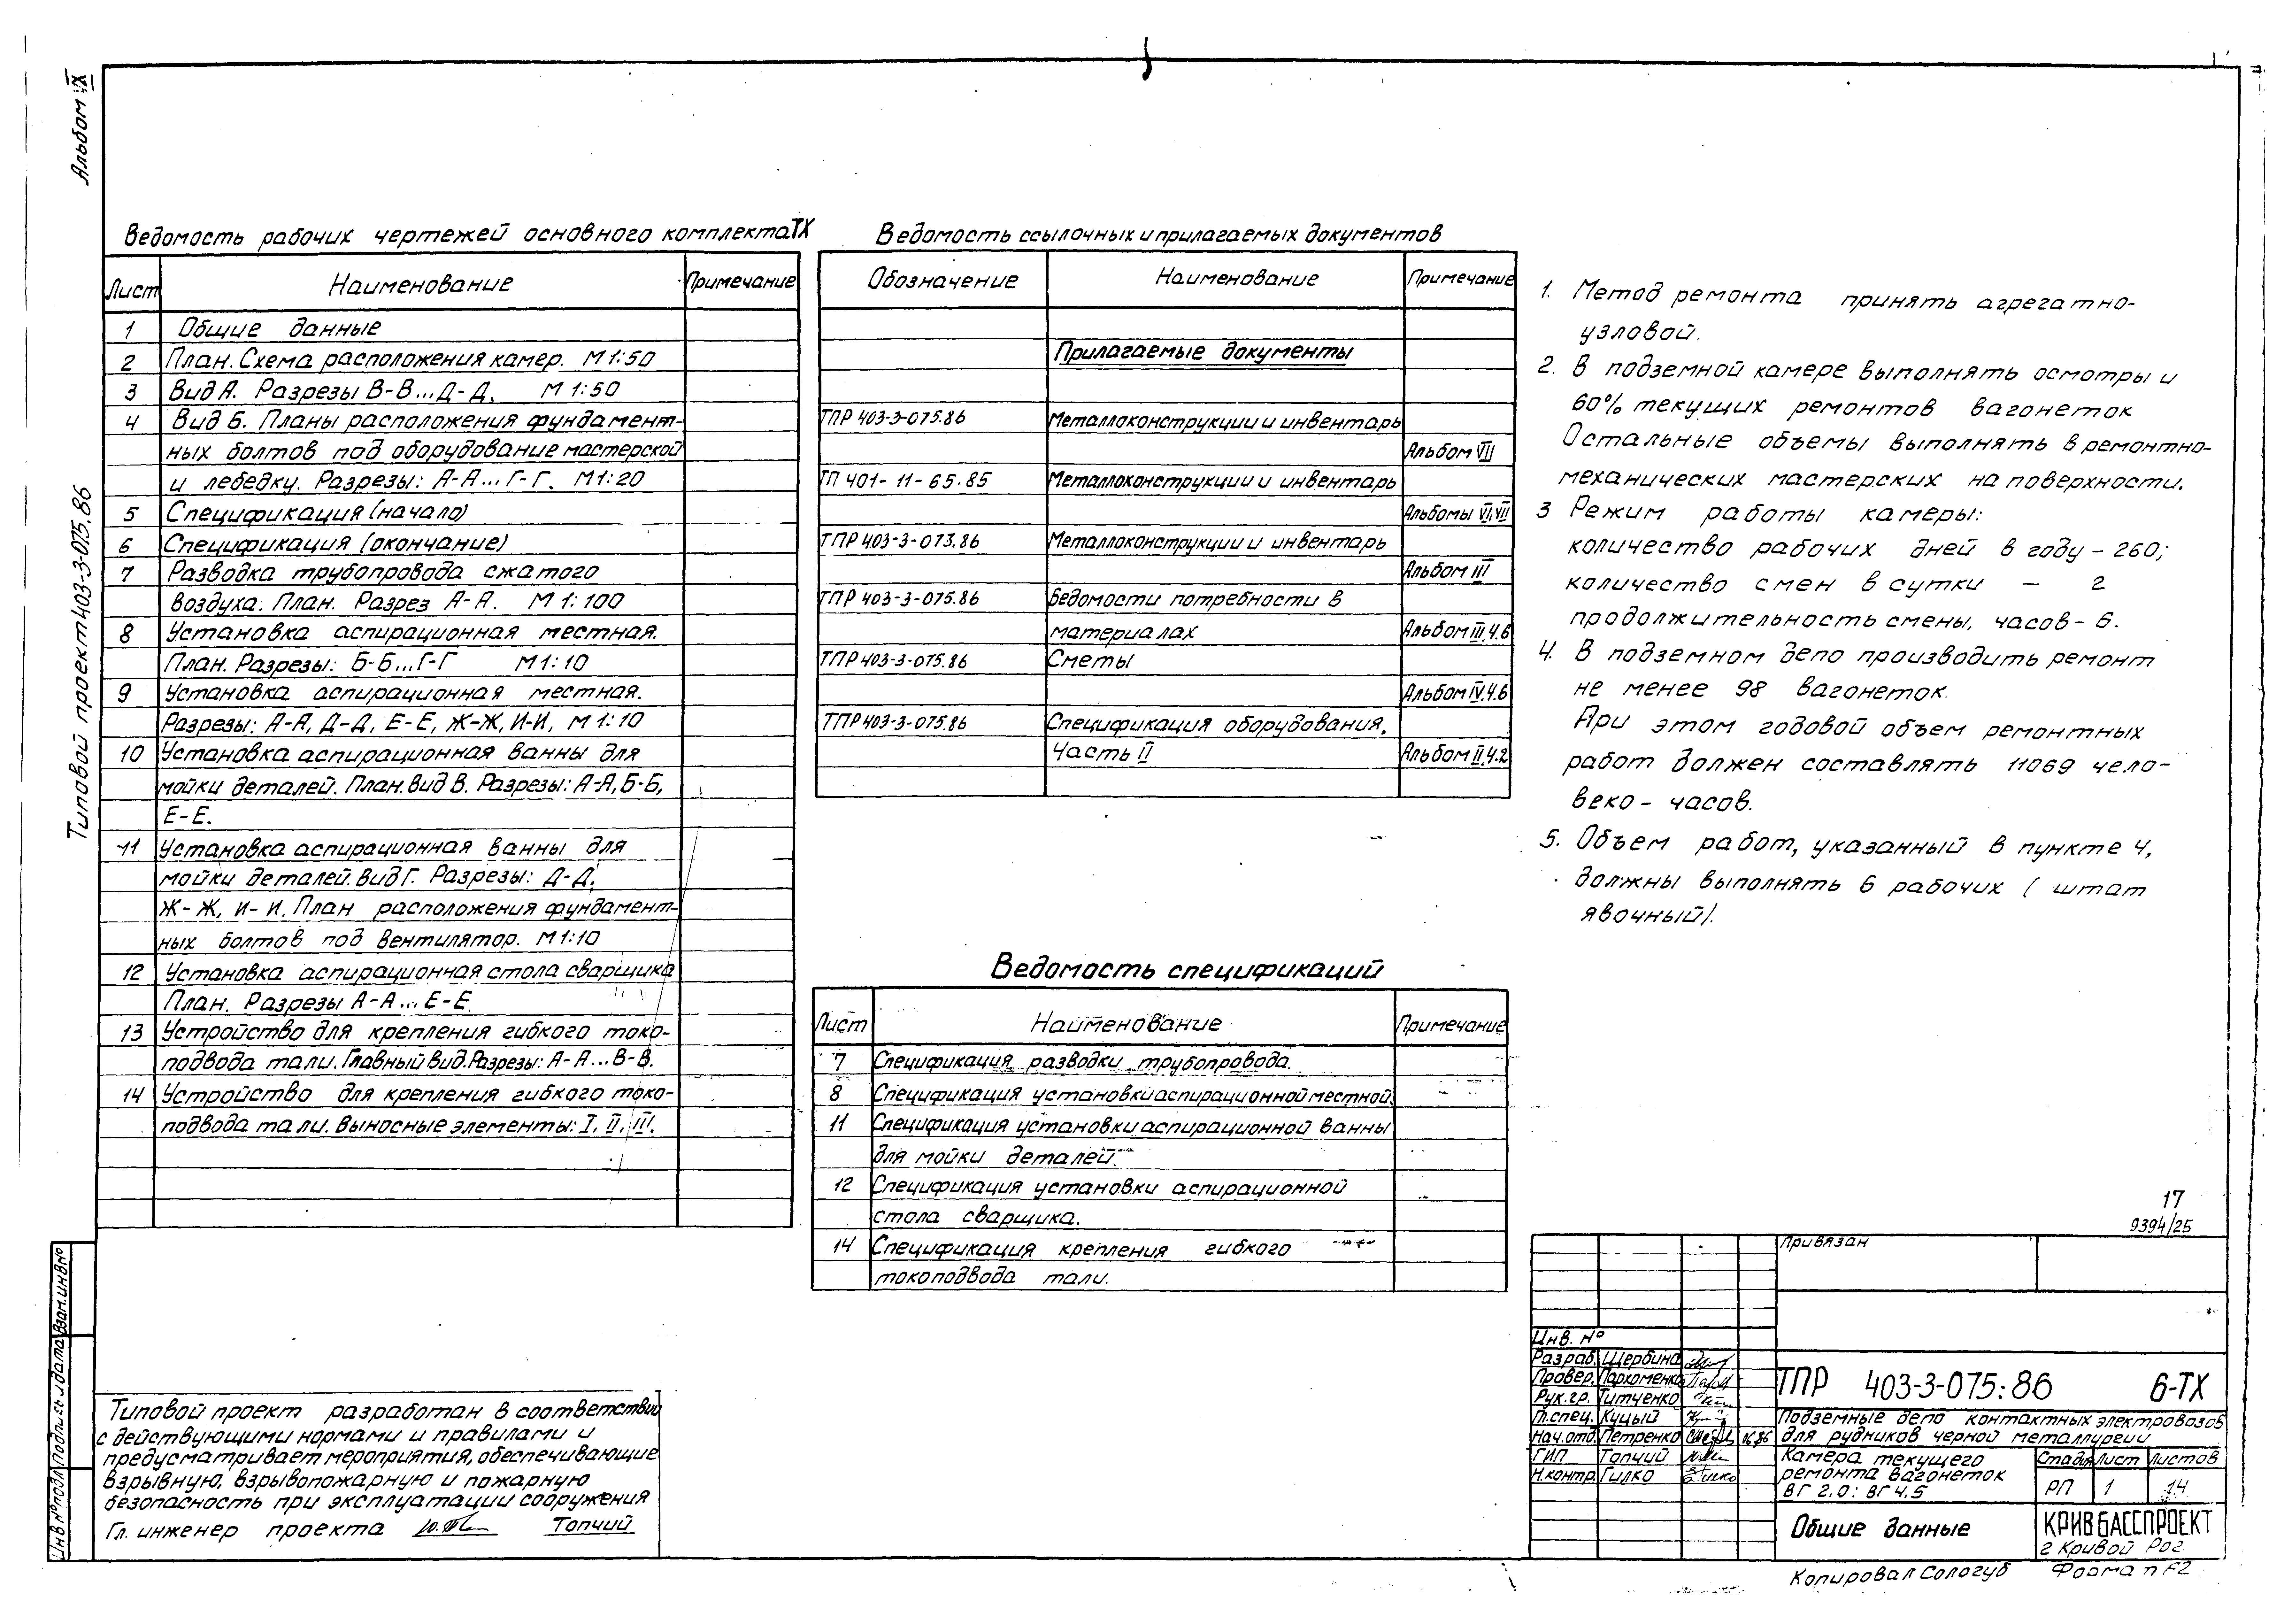 Альбом IX
Типовой проект 403-3-075.86
Ведомость рабочих чертежей основного комплекта ТХ
Лист Наименование Примечание
1 Общие данные
2 План. Схема расположения камер. М 1:50
3 Вид А. Разрезы В-В...Д-Д. М 1:50
4 Вид Б. Планы расположения фундамент-
ных болтов под оборудование мастерской
и лебедку. Разрезы: А-А...Г-Г. М1:20
5 Спецификация (начало)
6 Спецификация (окончание)
7 Разводка трубопровода сжатого
воздуха. План. Разрез А-А. М 1:100
8 Установка аспирационная местная.
План. Разрезы: Б-Б...Г-Г М1:10
9 Установка аспирационная местная.
Разрезы: А-А, Д-Д, Е-Е, Ж-Ж, И-И, М 1:10
10 Установка аспирационная ванны для
мойки деталей. План. Вид В. Разрезы: А-А, Б-Б,
Е-Е.
11 Установка аспирационная ванны для
мойки деталей. Вид Г. Разрезы: Д-Д,
Ж-Ж, И-И. План расположения фундамент-
ных болтов под вентилятор. М1:10
12 Установка аспирационная стола сварщика
План. Разрезы А-А...Е-Е.
13 Устройство для крепления гибкого токо-
подвода тали. Главный вид. Разрезы: А-А...В-В.
14 Устройство для крепления гибкого токо-
подвода тали. Выносные элементы: I, II, III.
Ведомость ссылочных и прилагаемых документов
Обозначение Наименование Примечание
Прилагаемые документы
ТПР 403-3-075.86 Металлоконструкции и инвентарь
Альбом VII
ТП 401-11-65.85 Металлоконструкции и инвентарь
Альбомы VI, VII
ТПР 403-3-073.86 Металлоконструкции и инвентарь
Альбом III
ТПР 403-3-075.86 Ведомости потребности в
материалах Альбом III.ч.6
ТПР 403-3-075.86 Сметы
Альбом IV.ч.6
ТПР 403-3-075.86 Спецификация оборудования.
Часть II Альбом II.ч.2
Ведомость спецификаций
Лист Наименование Примечание
7 Спецификация разводки трубопровода.
8 Спецификация установки аспирационной местной.
11 Спецификация установки аспирационной ванны
для мойки деталей.
12 Спецификация установки аспирационной
стола сварщика.
14 Спецификация крепления гибкого
токоподвода тали.
1. Метод ремонта принять агрегатно-
узловой.
2. В подземной камере выполнять осмотры и
60% текущих ремонтов вагонеток
Остальные объемы выполнять в ремонтно-
механических мастерских на поверхности.
3 Режим работы камеры:
количество рабочих дней в году - 260;
количество смен в сутки - 2
продолжительность смены, часов - 6.
4. В подземном депо производить ремонт
не менее 98 вагонеток.
При этом годовой объем ремонтных
работ должен составлять 11069 чело-
веко-часов.
5. Объем работ, указанный в пункте 4,
должны выполнять 6 рабочих (штат
явочный).
17
9394/25
Инв № подл Подпись и дата Взам. инв №
Типовой проект разработан в соответствии
с действующими нормами и правилами и
предусматривает мероприятия, обеспечивающие
взрывную, взрывопожарную и пожарную
безопасность при эксплуатации сооружения
Гл. инженер проекта Топчий
Привязан
Инв. №
Разраб. Щербина
Провер. Пархоменко
Рук. гр. Титченко
Гл. спец. Куцый
Нач. отд. Петренко 06.86
ГИП Топчий
Н. контр. Гилко
ТПР 403-3-075:86 6-ТХ
Подземные депо контактных электровозов
для рудников черной металлургии
Камера текущего
ремонта вагонеток
ВГ 2.0; ВГ 4.5
Стадия Лист Листов
РП 1 14
Общие данные
КРИВБАССПРОЕКТ
г Кривой Рог
Копировал Сологуб Формат F2